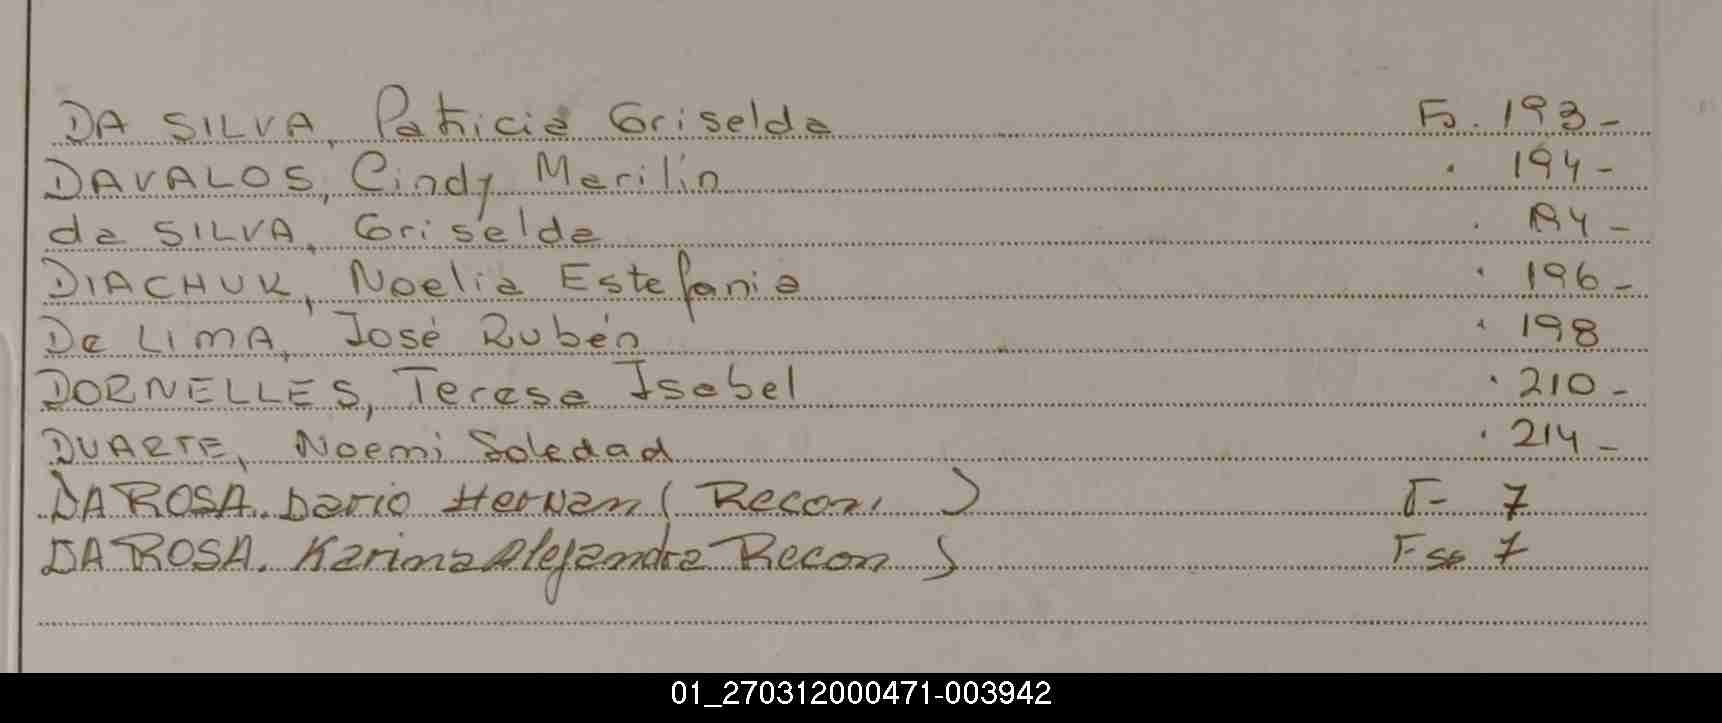 DA SILVA, Patricia Griselda Fo. 193-
DAVALOS, Cindy Marilin . 194-
da SILVA, Griselda . 194-
DIACHUK, Noelia Estefania . 196-
De LIMA, José Rubén . 198
DORNELLES, Teresa Isabel . 210-
DUARTE, Noemi Soledad . 214-
DA ROSA. Dario Hernan ( Recon, ) F- 7
DA ROSA. Karina Alejandra Recon ) 7
01_270312000471-003942